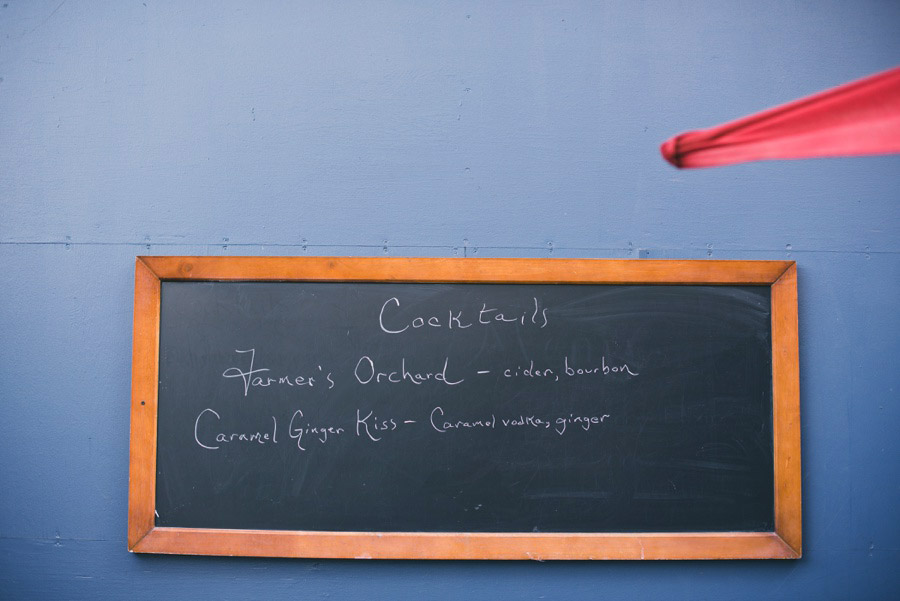 Cocktails
Farmer's Orchard - cider, bourbon
Caramel Ginger Kiss - Caramel vodka, ginger